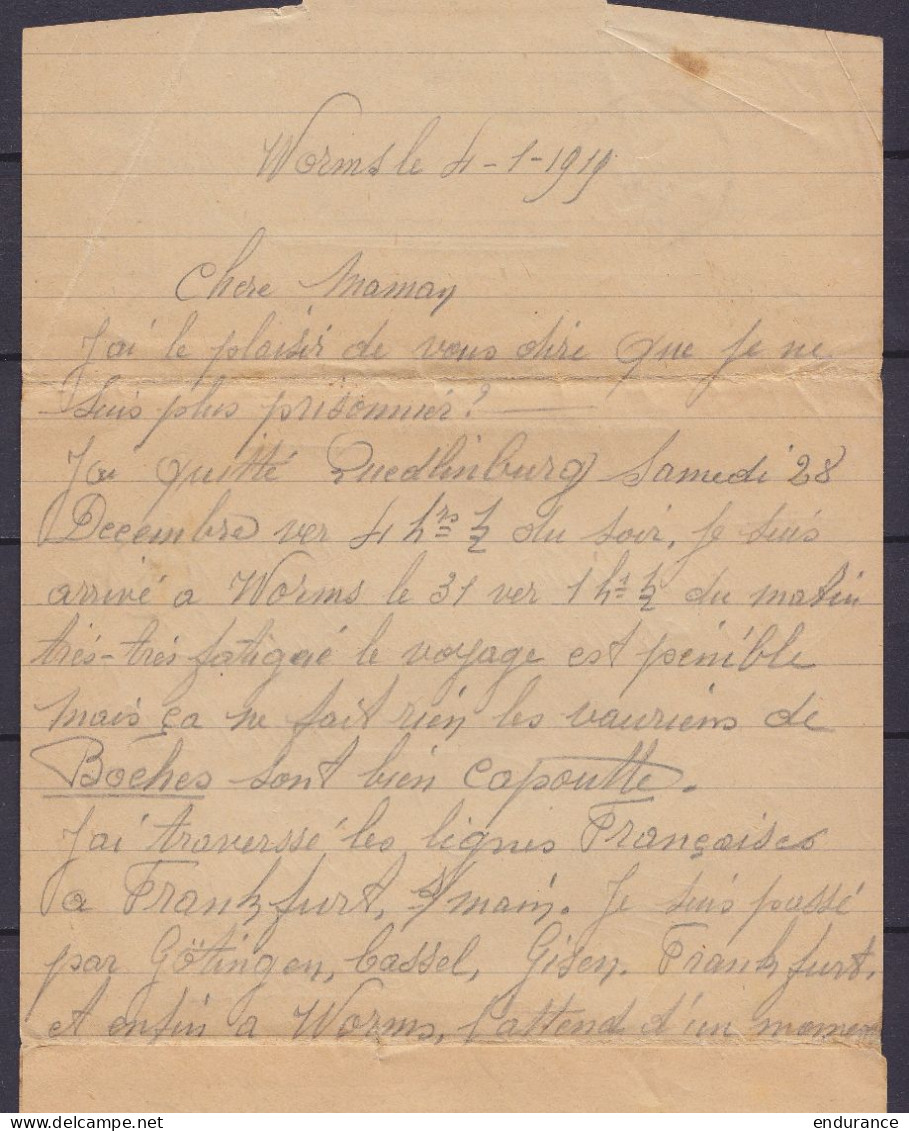 Worms le 4-1-1919
Chere Maman
J'ai le plaisir de vous dire que je ne
suis plus prisonnier?
J'ai quitté Quedlinburg Samedi 28
Decembre ver 4 hrs ½ du soir, je suis
arrivé a Worms le 31 ver 1 hs ½ du matin
trés-trés fatigué le voyage est penible
mais ça ne fait rien les vauriens de
Boches sont bien capoutte.
J'ai traverssé les lignes Françaises
a Frankfurt, s/main. Je suis passé
par Götingen, Cassel, Gisen, Frankfurt,
et enfin a Worms, j'attend d'un moment
delcampe.net
endurance